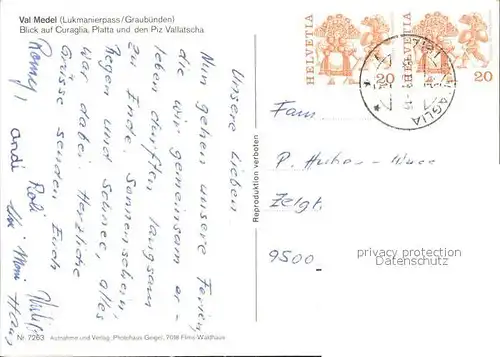 Val Medel (Lukmanierpass/Graubünden)
Blick auf Curaglia, Platta und den Piz Vallatscha
Unsere Lieben
Nun gehen unsere Ferien
die wir gemeinsam er-
leben durften langsam
zu Ende. Sonnenschein,
Regen und Schnee, alles
war dabei. Herzliche
Grüsse senden Euch
Romy, Roli
andi
Nr. 7263 Aufnahme und Verlag: Photohaus Geiger, 7018 Flims-Waldhaus
Reproduktion verboten
HELVETIA 20
HELVETIA 20
CURAGLIA
Fam.
P.
Zelgt
9500
privacy protection
Datenschutz